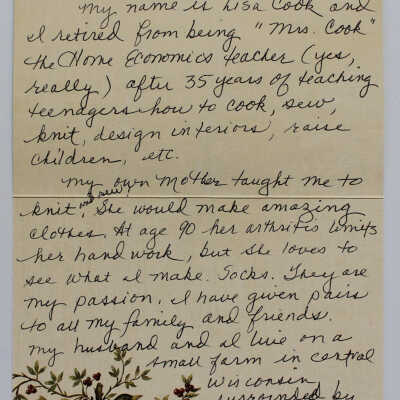 My name is Lisa Cook and
I retired from being "Mrs. Cook"
the Home Economics teacher (yes,
really) after 35 years of teaching
teenagers how to cook, sew,
knit, design interiors, raise
children, etc.
My own Mother taught me to
knit and sew. She would make amazing
clothes. At age 90 her arthritis limits
her hand work, but she loves to
see what I make. Socks. They are
my passion. I have given pairs
to all my family and friends.
My husband and I live on a
small farm in central
Wisconsin,
surrounded by